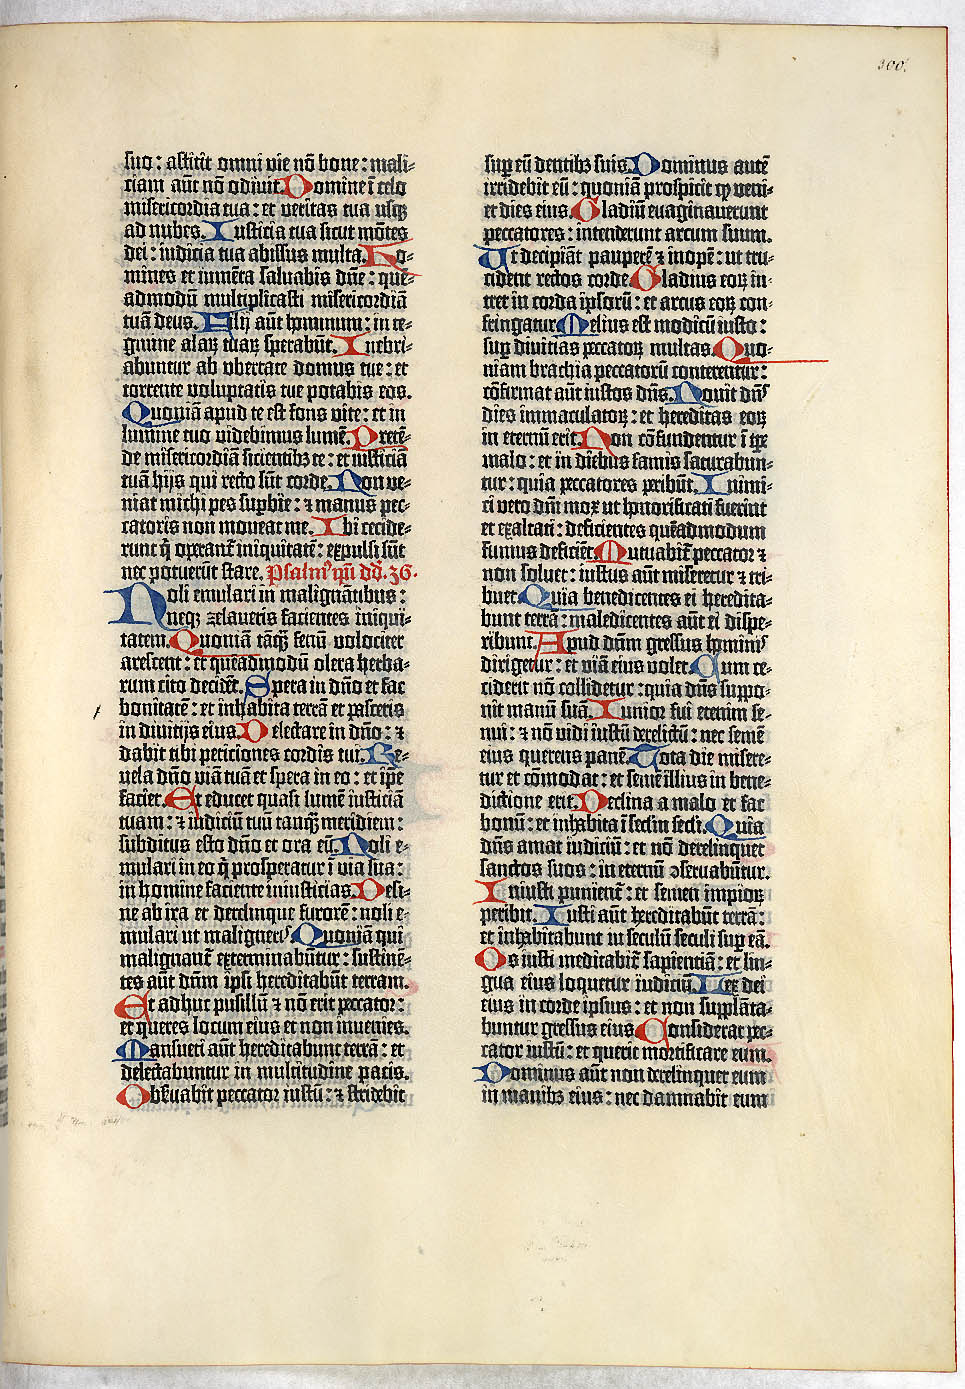 300.
suo : astitit omni vie nō bone : mali-
ciam aūt nō odivit. Domine ī celo
misericordia tua : et veritas tua usqꝫ
ad nubes. Iusticia tua sicut mōtes
dei : iudicia tua abissus multa. Ho-
mines et iumēta salvabis dñe : quē-
admodū multiplicasti misericordiā
tuā deus. Filij aūt hominum : in te-
gmine alaꝝ tuaꝝ sperabūt. Inebri-
abuntur ab ubertate domus tue : et
torrente voluptatis tue potabis eos.
Quoniā apud te est fons vite : et in
lumine tuo videbimus lumē. Pretē-
de misericordiā scientibꝫ te : et iusticiā
tuā hijs qui recto sūt corde. Non ve-
niat michi pes supbie : ⁊ manus pec-
catoris non moveat me. Ibi cecide-
runt q̄ operant̄ iniquitatē : expulsi sūt
nec potuerūt stare. Psalmꝰ qū dd̄. 36.
Noli emulari in malignātibus :
neqꝫ zelaveris facientes iniqui-
tatem. Quoniā tāqꝫ fenū velociter
arescent : et quēadmodū olera herba-
rum cito decidēt. Spera in dño et fac
bonitatē : et inhabita terrā et pasceris
in divitijs eius. Delectare in dño : ⁊
dabit tibi peticiones cordis tui. Re-
vela dño viā tuā et spera in eo : et ip̄e
faciet. Et educet quasi lumē iusticiā
tuam : ⁊ iudiciū tuū tanqꝫ meridiem :
subditus esto dño et ora eū. Noli e-
mulari in eo q̄ prosperatur ī via sua :
in homine faciente iniusticias. Desi-
ne ab ira et derelinque furorē : noli e-
mulari ut maligneris. Quoniā qui
malignant̄ exterminabūtur : sustinē-
tes aūt dñm ipsi hereditabūt terram.
Et adhuc pusillū ⁊ nō erit peccator :
et queres locum eius et non invenies.
Mansueti aūt hereditabunt terrā : et
delectabuntur in multitudine pacis.
Obẜvabit peccator iustū : ⁊ stridebit
sup eū dentibꝫ suis. Dominus autē
irridebit eū : quoniā prospicit qꝫ veni-
et dies eius. Gladiū evaginaverunt
peccatores : intenderunt arcum suum.
Ut decipiāt pauperē ⁊ inopē : ut tru-
cident rectos corde. Gladius eoꝝ in-
tret in corda ipsorū : et arcus eoꝝ con-
fringatur. Melius est modicū iusto :
sup divitias peccatoꝝ multas. Quo-
niam brachia peccatorū conterentur :
cōfirmat aūt iustos dñs. Novit dñs
dies immaculatoꝝ : et hereditas eoꝝ
in eternū erit. Non cōfundentur ī tp̄e
malo : et in diebus famis saturabun-
tur : quia peccatores peribūt. Inimi-
ci vero dñi mox ut honorificati fuerint
et exaltati : deficientes quēadmodum
fumus deficiēt. Mutuabit̄ peccator ⁊
non solvet : iustus aūt miseretur ⁊ tri-
buet. Quia benedicentes ei heredita-
bunt terrā : maledicentes aūt ei dispe-
ribunt. Apud dñm gressus hominis
dirigetur : et viā eius volet. Cum ce-
ciderit nō collidetur : quia dñs suppo-
nit manū suā. Iunior fui etenim se-
nui : ⁊ nō vidi iustū derelictū : nec semē
eius querens panē. Tota die misere-
tur et cōmodat : et semē illius in bene-
dictione erit. Declina a malo et fac
bonū : et inhabita ī seclm secli. Quia
dñs amat iudiciū : et nō derelinquet
sanctos suos : in eternū ꝯservabūtur.
Iniusti punient̄ : et semen impioꝝ
peribit. Iusti aūt hereditabūt terrā :
et inhabitabunt in seculū seculi sup eā.
Os iusti meditabit̄ sapientiā : et lin-
gua eius loquetur iudiciū. Lex dei
eius in corde ipsius : et non supplāta-
buntur gressus eius. Considerat pec-
cator iustū : et querit mortificare eum.
Dominus aūt non derelinquet eum
in manibꝫ eius : nec damnabit eum